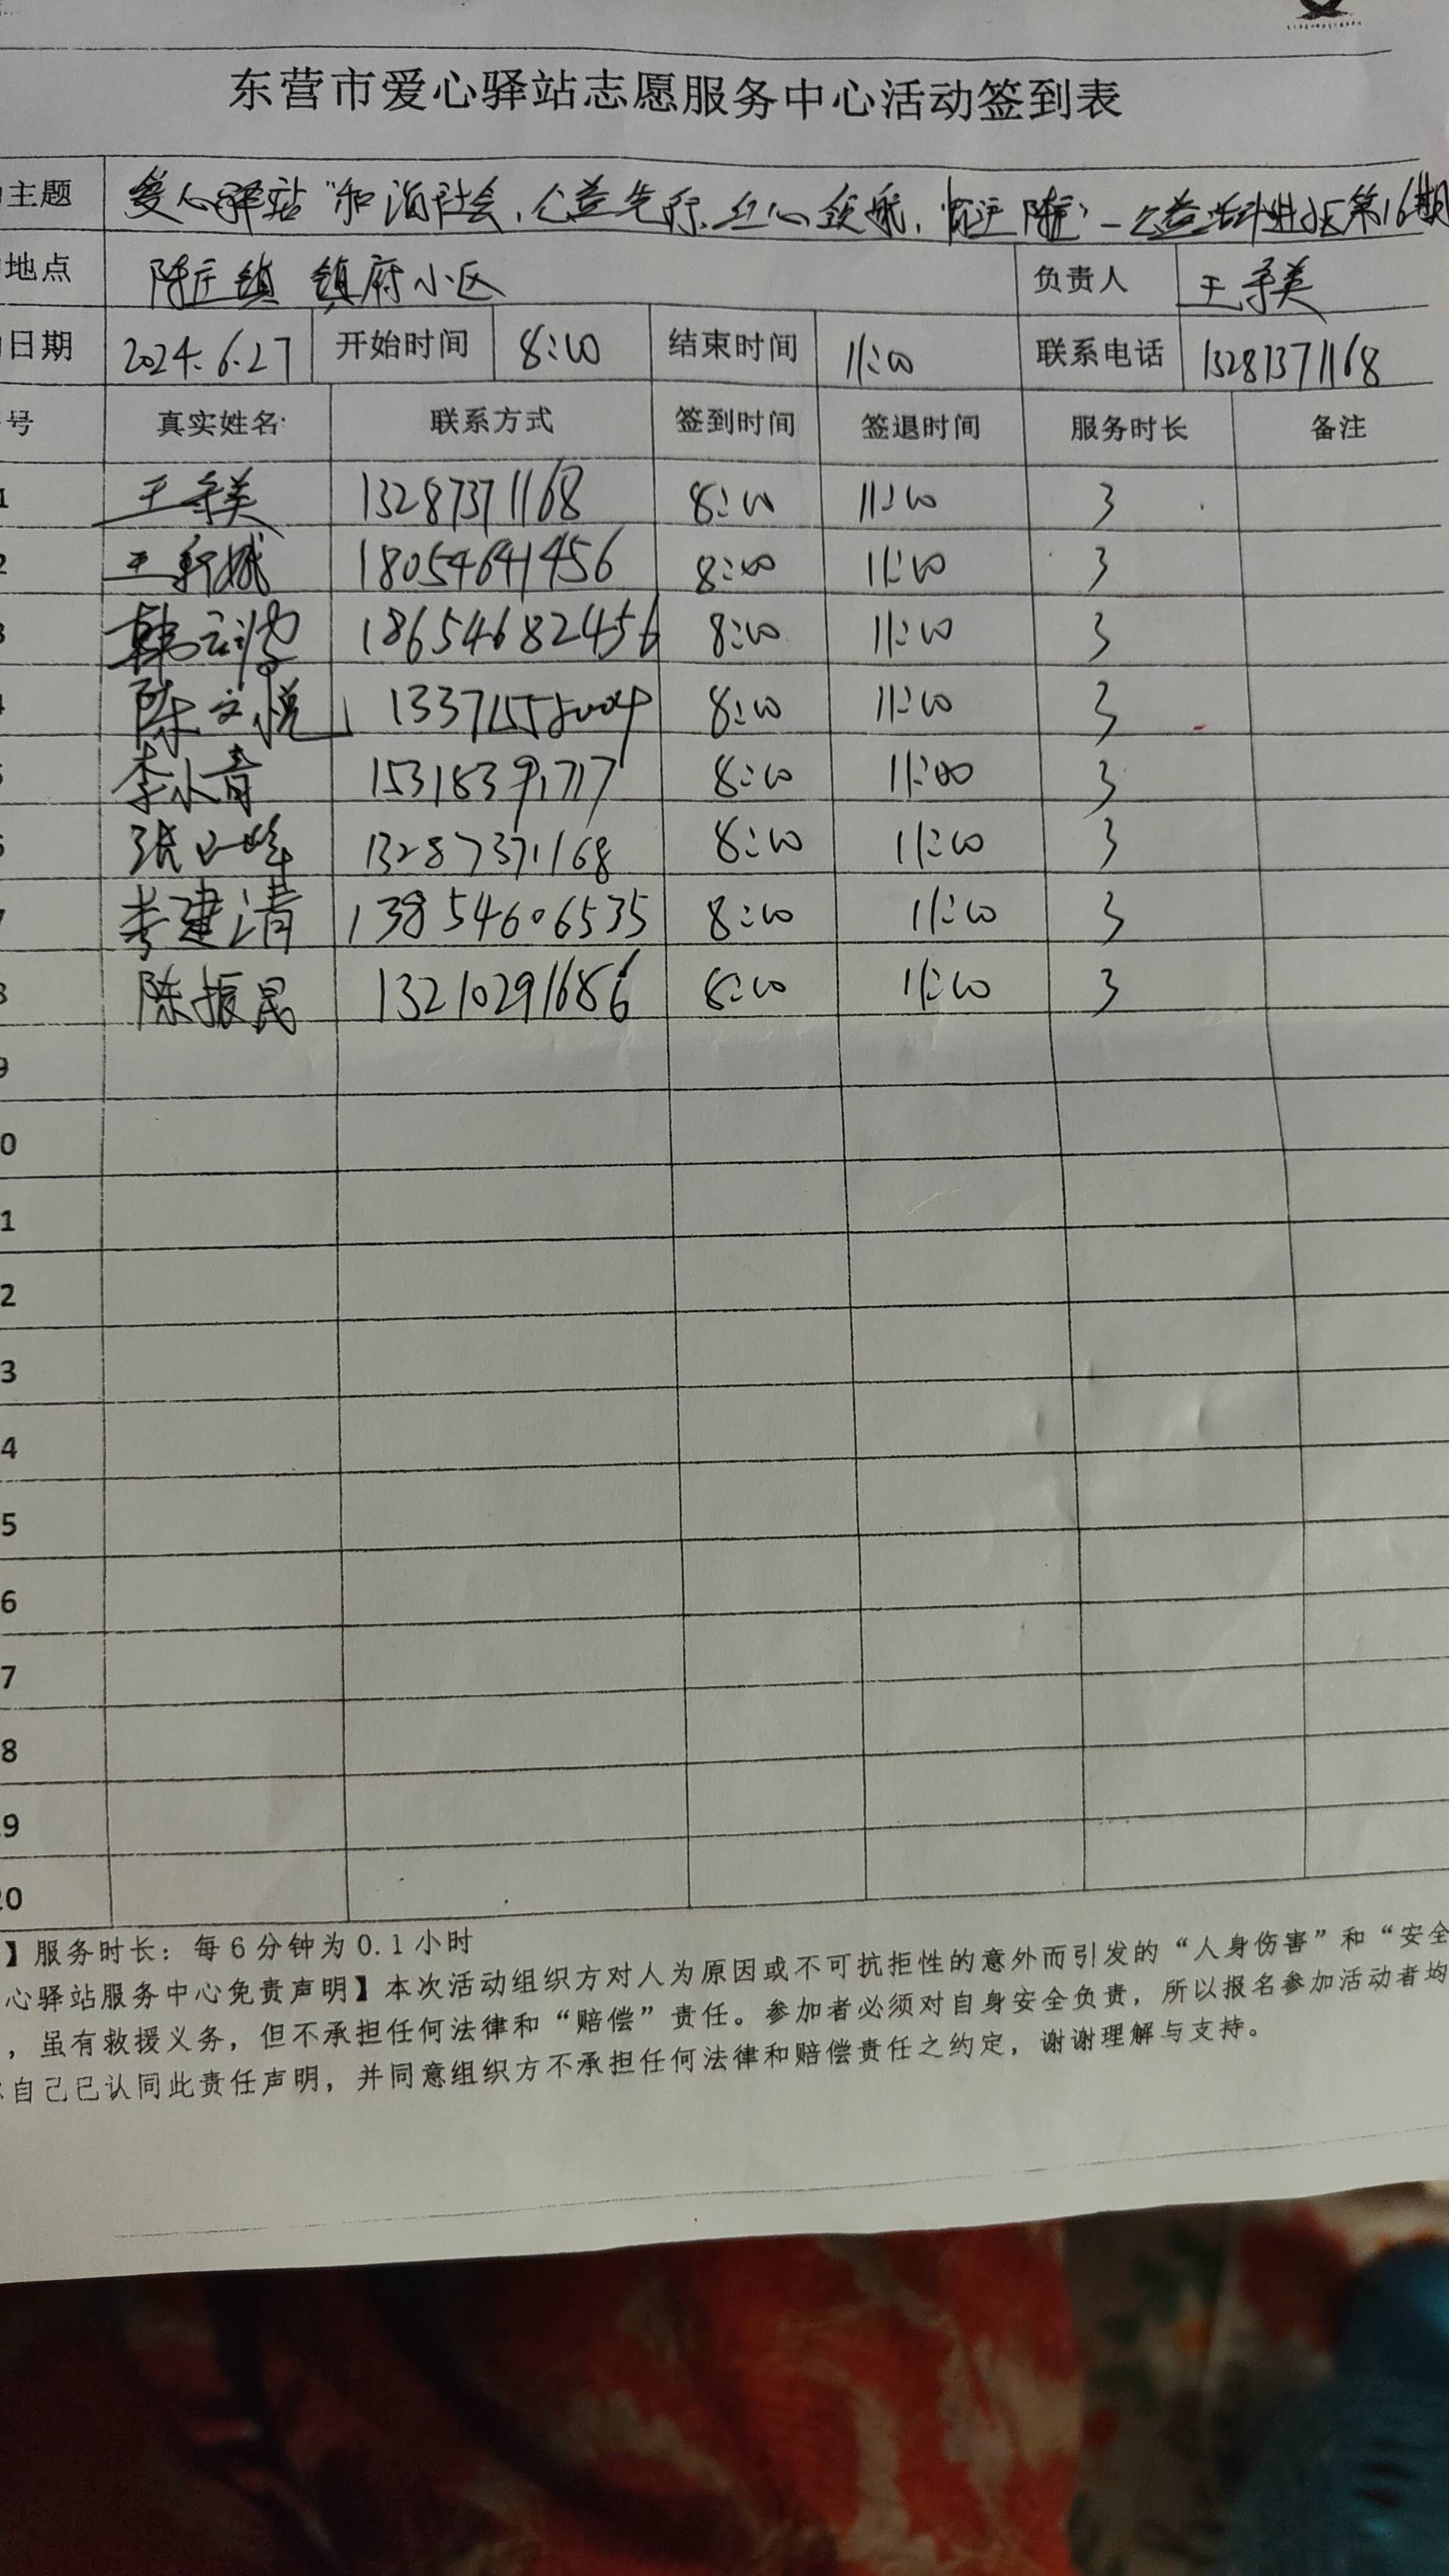 东营市爱心驿站志愿服务中心活动签到表
主题 爱心驿站“和谐社会,公益先行,红心领航, 陈庄”—公益活动进小区第16期
地点 陈庄镇 镇府小区 负责人 王孝美
日期 2024.6.27 开始时间 8:00 结束时间 11:00 联系电话 13287371168
号 真实姓名 联系方式 签到时间 签退时间 服务时长 备注
1 王孝美 13287371168 8:00 11:00 3
2 王新娥 18054641456 8:00 11:00 3
3 韩 18654682456 8:00 11:00 3
4 陈文悦 8:00 11:00 3
5 李水青 15318391717 8:00 11:00 3
6 张 13287371168 8:00 11:00 3
7 李建清 13854606535 8:00 11:00 3
8 陈振昆 13210291686 8:00 11:00 3
9
0
1
2
3
4
5
6
7
8
9
0
】服务时长:每6分钟为0.1小时
心驿站服务中心免责声明】本次活动组织方对人为原因或不可抗拒性的意外而引发的“人身伤害”和“安全
,虽有救援义务,但不承担任何法律和“赔偿”责任。参加者必须对自身安全负责,所以报名参加活动者均
自己已认同此责任声明,并同意组织方不承担任何法律和赔偿责任之约定,谢谢理解与支持。